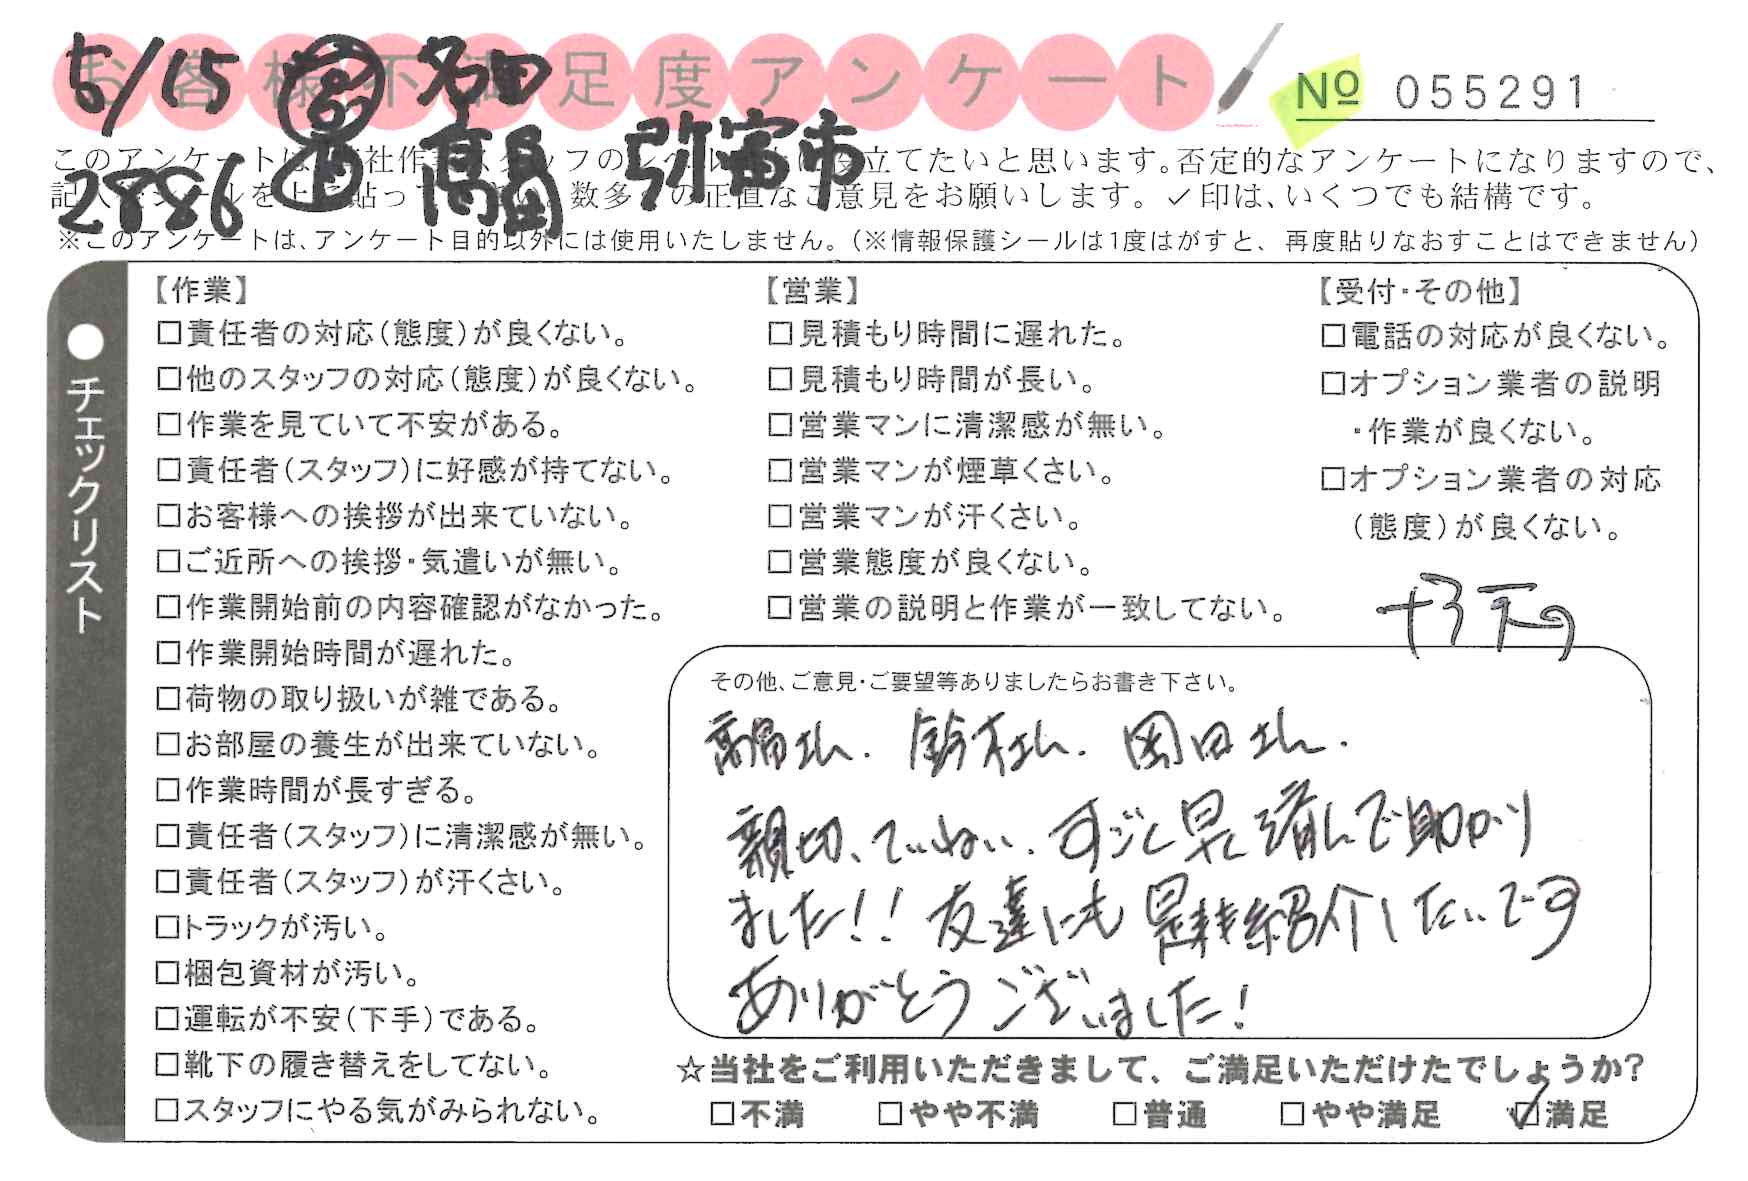 お客様不満足度アンケート
№ 055291
5/15
2886
弥富市
このアンケートは 社作 スタッフのレ 役立てたいと思います。否定的なアンケートになりますので、
数多 の正直なご意見をお願いします。✓印は、いくつでも結構です。
※このアンケートは、アンケート目的以外には使用いたしません。(※情報保護シールは1度はがすと、再度貼りなおすことはできません)
●チェックリスト
【作業】
□責任者の対応(態度)が良くない。
□他のスタッフの対応(態度)が良くない。
□作業を見ていて不安がある。
□責任者(スタッフ)に好感が持てない。
□お客様への挨拶が出来ていない。
□ご近所への挨拶・気遣いが無い。
□作業開始前の内容確認がなかった。
□作業開始時間が遅れた。
□荷物の取り扱いが雑である。
□お部屋の養生が出来ていない。
□作業時間が長すぎる。
□責任者(スタッフ)に清潔感が無い。
□責任者(スタッフ)が汗くさい。
□トラックが汚い。
□梱包資材が汚い。
□運転が不安(下手)である。
□靴下の履き替えをしてない。
□スタッフにやる気がみられない。
【営業】
□見積もり時間に遅れた。
□見積もり時間が長い。
□営業マンに清潔感が無い。
□営業マンが煙草くさい。
□営業マンが汗くさい。
□営業態度が良くない。
□営業の説明と作業が一致してない。
【受付・その他】
□電話の対応が良くない。
□オプション業者の説明
・作業が良くない。
□オプション業者の対応
(態度)が良くない。
その他、ご意見・ご要望等ありましたらお書き下さい。
さん. 鈴木さん. 岡田さん.
親切、ていねい、すごく早く済んで助かり
ました!! 友達にも是非紹介したいです
ありがとうございました!
☆当社をご利用いただきまして、ご満足いただけたでしょうか?
□不満 □やや不満 □普通 □やや満足 ☑満足